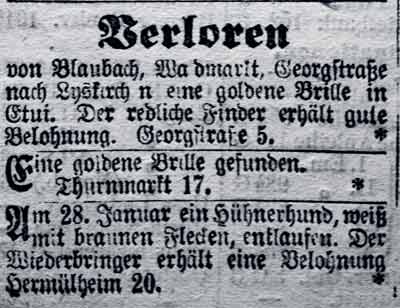 Verloren
von Blaubach, Wa dmarkt, Georgstraße
nach Lyskirch n eine goldene Brille in
Etui. Der redliche Finder erhält gute
Belohnung. Georgstraße 5. *
Eine goldene Brille gefunden.
Thurnmarkt 17. *
Am 28. Januar ein Hühnerhund, weiß
mit braunen Flecken, entlaufen. Der
Wiederbringer erhält eine Belohnung
Hermülheim 20. *